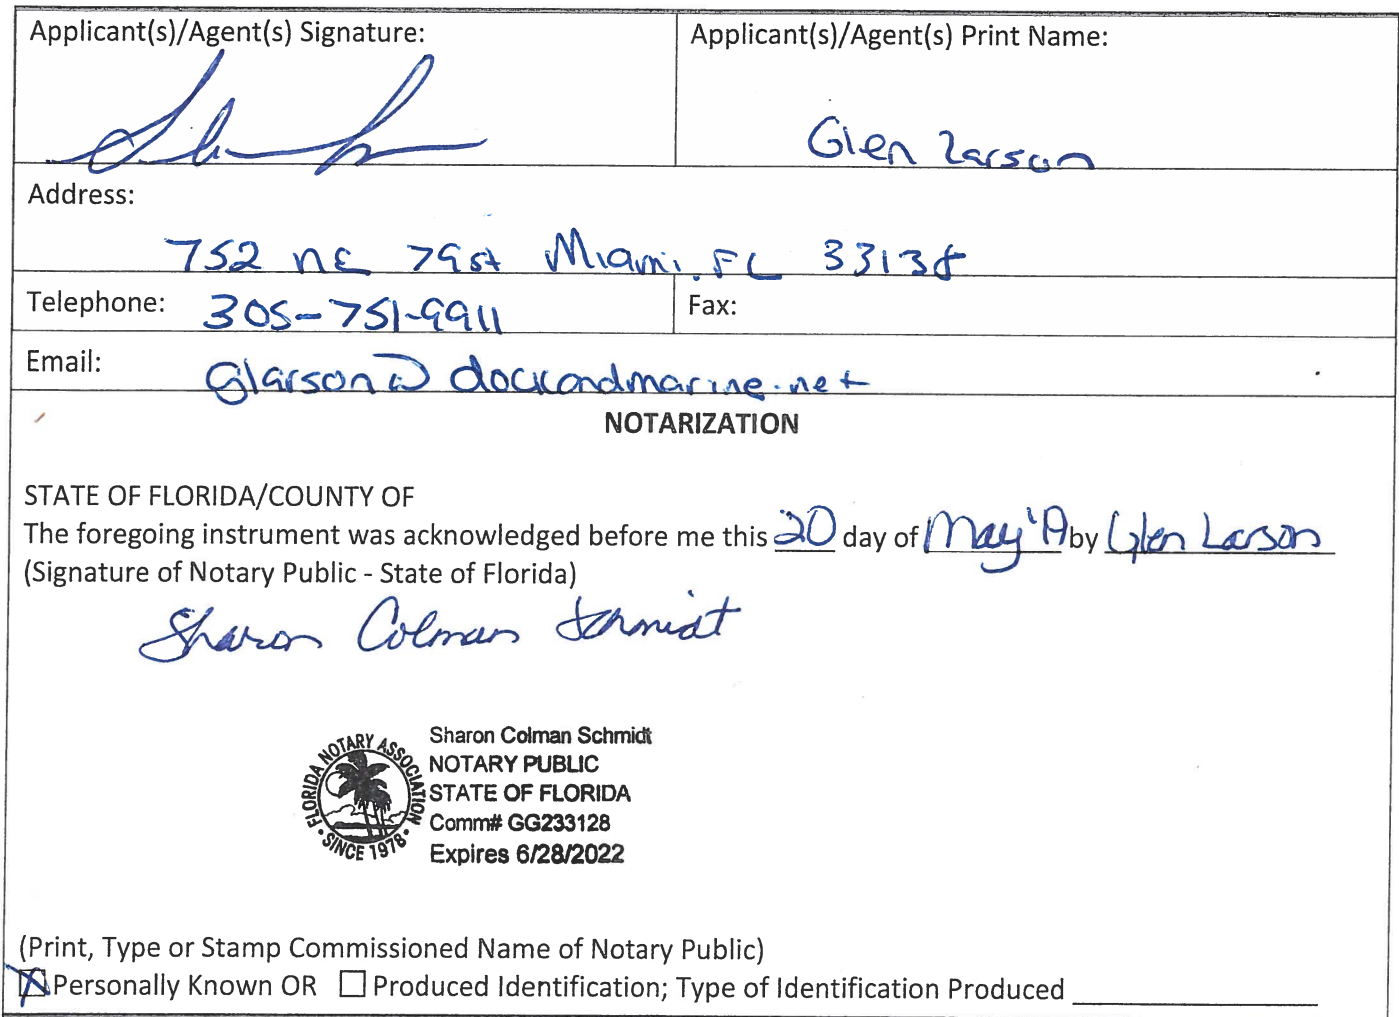 Applicant(s)/Agent(s) Signature:
Applicant(s)/Agent(s) Print Name:
Glen Larson
Address:
752 NE 79st Miami, FL 33138
Telephone: 305-751-9911
Fax:
Email: Glarson@dockandmarine.net
NOTARIZATION
STATE OF FLORIDA/COUNTY OF
The foregoing instrument was acknowledged before me this 20 day of May '19 by Glen Larson
(Signature of Notary Public - State of Florida)
Sharon Colman Schmidt
FLORIDA NOTARY ASSOCIATION
• SINCE 1978 •
Sharon Colman Schmidt
NOTARY PUBLIC
STATE OF FLORIDA
Comm# GG233128
Expires 6/28/2022
(Print, Type or Stamp Commissioned Name of Notary Public)
☒ Personally Known OR ☐ Produced Identification; Type of Identification Produced